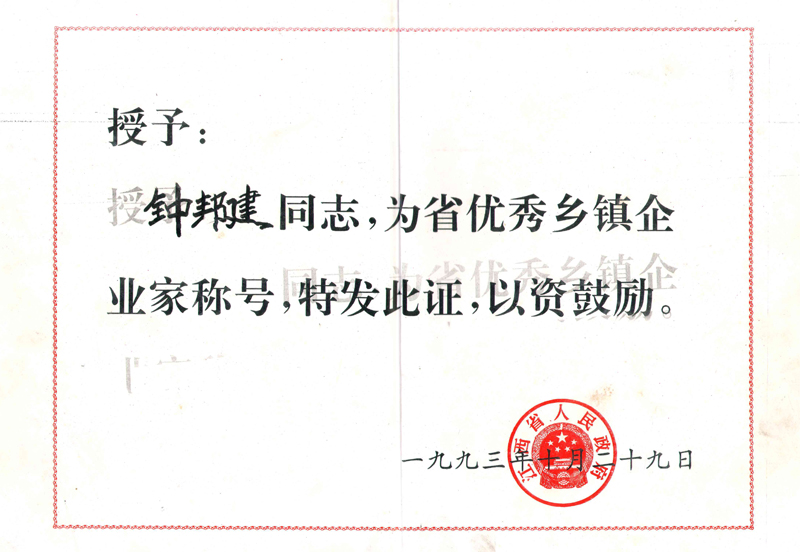 授予：
钟邦建同志，为省优秀乡镇企
业家称号，特发此证，以资鼓励。
江西省人民政府
一九九三年十月二十九日